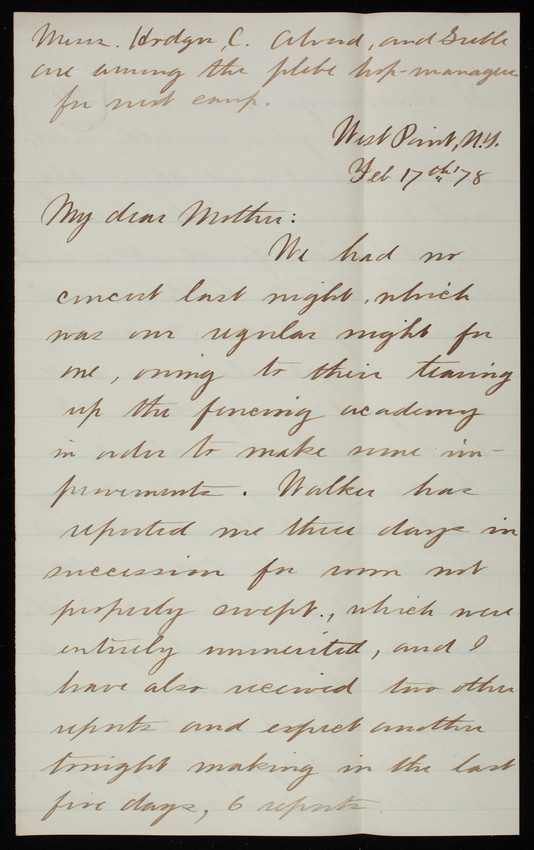 Messrs. Hodges, C. Alvord, and Greble
are among the plebe hop-managers
for next camp.
West Point, N.Y.
Feb 17th '78
My dear Mother:
We had no
concert last night, which
was our regular night for
one, owing to their tearing
up the fencing academy
in order to make some im-
provements. Walker has
reported me three days in
succession for room not
properly swept., which were
entirely unmerited, and I
have also received two other
reports and expect another
tonight making in the last
five days, 6 reports.